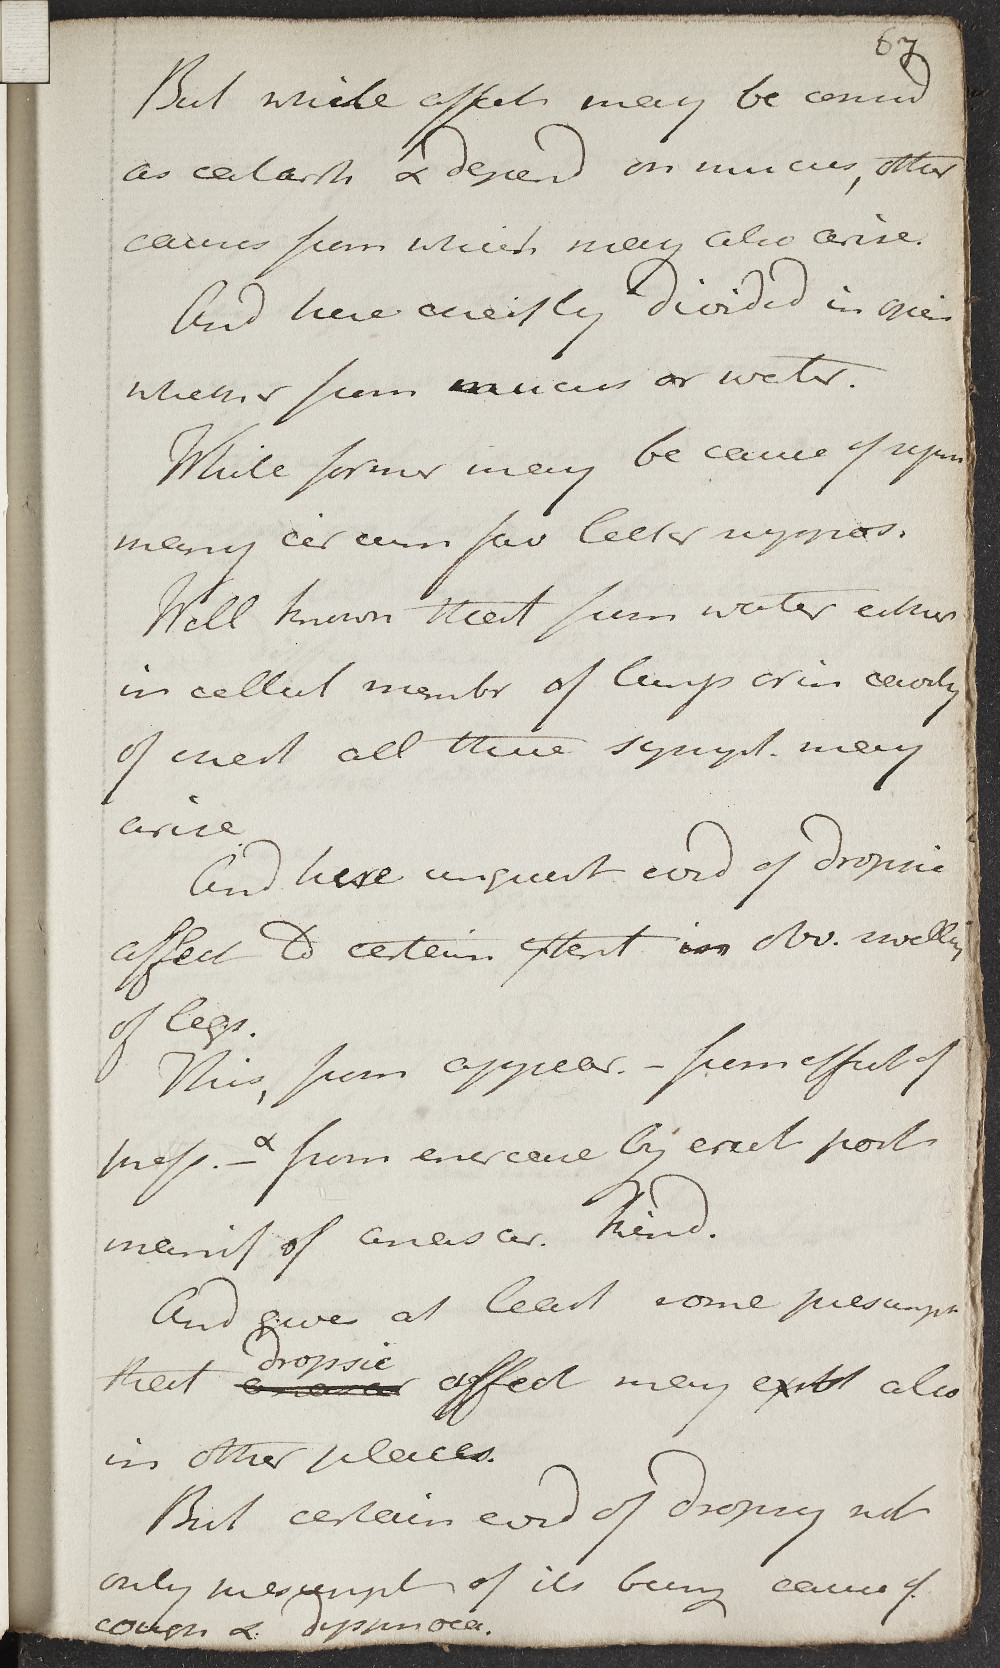 67
But while affect may be consid
as catarrh & depend on mucus, other
causes from which may also arise.
And here chiefly divided in opin
whether from mucus or water.
While former may be cause of
many circum fav latter suppos.
Well known that from water either
in cellul membr of lungs or in cavity
of chest all these sympt. may
arise.
And here unquest evid of dropsic
affect to certain extent in obv. swelling
of legs.
This, from appear. - from effect of
press. - & from increase by erect post
manif of anasar. kind.
And gives at least some presumpt
that dropsic affect may exist also
in other places.
But certain evid of dropsy not
only presumpt of its being cause of
cough & dyspnoea.